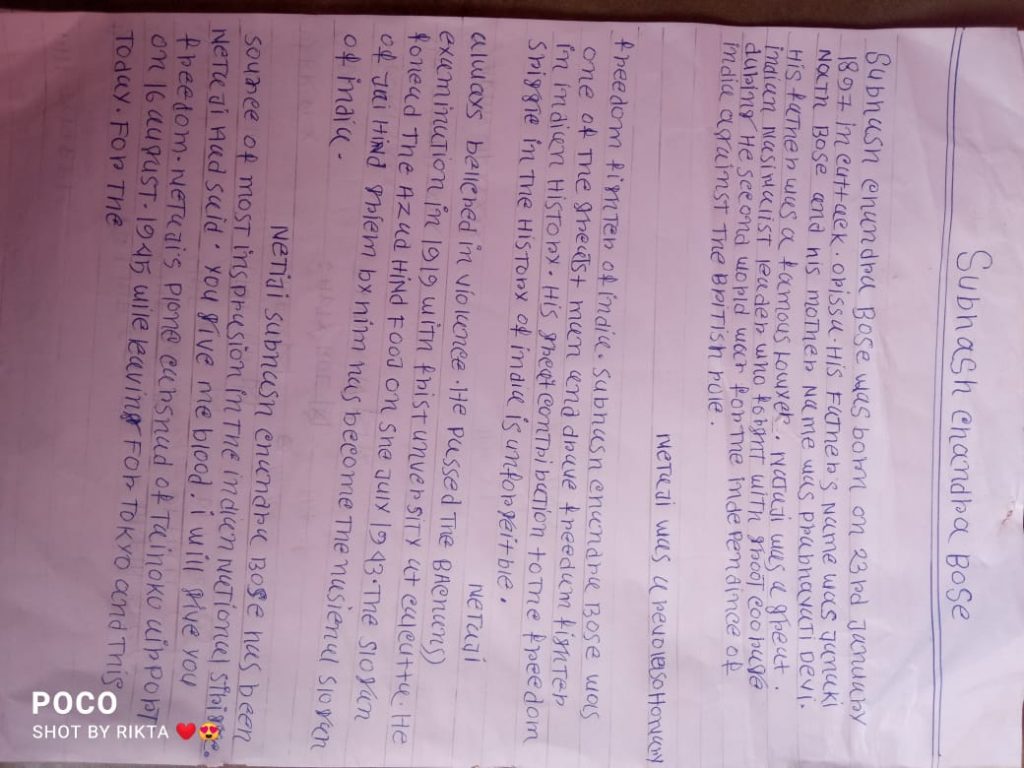 Subhash chandra Bose
Subhash chandra Bose was born on 23rd January
1897 in cuttaek. orissa. His Father's Name was Junaki
Nath Bose and his mother Name was prabhavati Devi.
His father was a famous lowyer. Netuji was a great.
indian Nasiwalist leader who foight with groot courage
during He second world war for the independince of
india against the British role.
Netuji was a revolesotionary
freedom fighter of india. subhash chundra Bose was
one of the greatst mean and drave freedom fighter
in indien History. His great contribution to the freedom
Shiggre in the History of india is unforgeitbe.
Netuji
always beliehed in violence. He passed the BA(Huns)
examination in 1919 with frist university at culcutta. He
foread The Azad Hind Fooj on she July 1943. The slogan
of Jai Hind ghiem by him has become the nusienul slogen
of india.
Netiji subhash chundra Bose has been
sounee of most insprasion in the indian national shigre.
Netuji had said. you give me blood. i will give you
freetom. Netaji's plone cunshad of Tainoku uirport
on 16 august. 1945 wile leaving For Tokyo and This
Today. For the
POCO
SHOT BY RIKTA ❤️😍